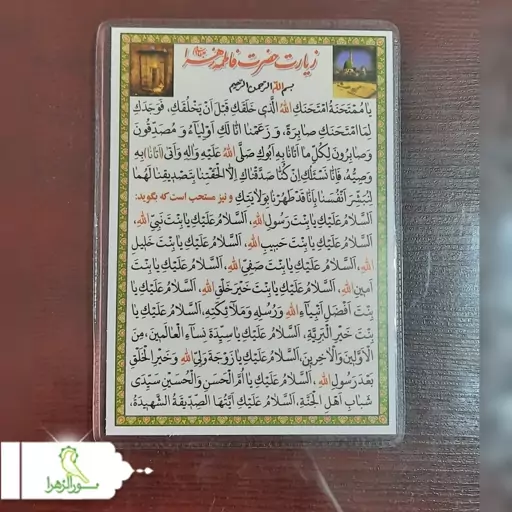 زیارت حضرت فاطمه زهرا
بسم الله الرحمن الرحیم
یا مُمْتَحَنَةُ امْتَحَنَكِ اللهُ الَّذي خَلَقَكِ قَبْلَ اَنْ يَخْلُقَكِ، فَوَجَدَكِ
لِمَا امْتَحَنَكِ صابِرَةً، وَ زَعَمْنا اَنّا لَكِ اَوْلِيآءُ وَ مُصَدِّقُونَ
وَ صابِرُونَ لِكُلِّ ما اَتانا بِهِ اَبُوكِ صَلَّى اللهُ عَلَيْهِ وَالِهِ وَاَتى (اَتانا) بِهِ
وَصِيُّهُ، فَاِنّا نَسْئَلُكِ اِنْ كُنّا صَدَّقْناكِ اِلاّ اَلْحَقْتِنا بِتَصْديقِنا لَهُما
لِنُبَشِّرَ اَنْفُسَنا بِاَنّا قَدْ طَهُرْنا بِوِلايَتِكِ و نیز مستحب است که بگوید:
اَلسَّلامُ عَلَيْكِ يا بِنْتَ رَسُولِ اللهِ، اَلسَّلامُ عَلَيْكِ يا بِنْتَ نَبِيِّ اللهِ،
اَلسَّلامُ عَلَيْكِ يا بِنْتَ حَبيبِ اللهِ، اَلسَّلامُ عَلَيْكِ يا بِنْتَ خَليلِ
اللهِ، اَلسَّلامُ عَلَيْكِ يا بِنْتَ صَفِيِّ اللهِ، اَلسَّلامُ عَلَيْكِ يا بِنْتَ
اَمينِ اللهِ، اَلسَّلامُ عَلَيْكِ يا بِنْتَ خَيْرِ خَلْقِ اللهِ، اَلسَّلامُ عَلَيْكِ يا
بِنْتَ اَفْضَلِ اَنْبِيآءِ اللهِ وَ رُسُلِهِ وَ مَلآئِكَتِهِ، اَلسَّلامُ عَلَيْكِ يا
بِنْتَ خَيْرِ الْبَرِيَّةِ، اَلسَّلامُ عَلَيْكِ يا سَيِّدَةَ نِسآءِ الْعالَمينَ، مِنَ
الْاَوَّلينَ وَ الْاخِرينَ، اَلسَّلامُ عَلَيْكِ يا زَوْجَةَ وَلِيِّ اللهِ وَ خَيْرِ الْخَلْقِ
بَعْدَ رَسُولِ اللهِ، اَلسَّلامُ عَلَيْكِ يا اُمَّ الْحَسَنِ وَ الْحُسَيْنِ سَيِّدَىْ
شَبابِ اَهْلِ الْجَنَّةِ، اَلسَّلامُ عَلَيْكِ اَيَّتُهَا الصِّدّيقَةُ الشَّهيدَةُ،
نورالزهرا